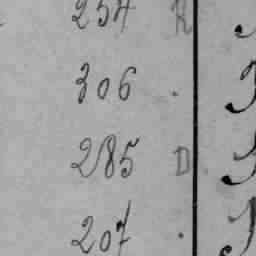 254 R
306 .
285 D
207 .